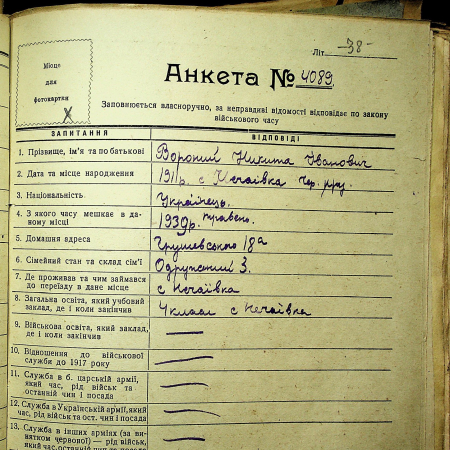 Літ. -38-
Місце
для
фотокартки
Анкета № 4089.
Заповнюється власноручно, за неправдиві відомості відповідає по закону
військового часу
ЗАПИТАННЯ ВІДПОВІДІ
1. Прізвище, ім'я та по батькові Вороний Никита Іванович
2. Дата та місце народження 1911р. с Нечаївка Чер.
3. Національність Українець.
4. З якого часу мешкає в даному місці 1939р. травень.
5. Домашня адреса Грушевського 18а
6. Сімейний стан та склад сім'ї Одружений 3.
7. Де проживав та чим займався
до переїзду в дане місце с Нечаївка
8. Загальна освіта, який учбовий
заклад, де і коли закінчив 4 класи с Нечаївка
9. Військова освіта, який заклад,
де і коли закінчив —
10. Відношення до військової
служби до 1917 року —
11. Служба в б. царській армії,
який час, рід військ та
останній чин і посада —
12. Служба в Українській армії, який
час, рід військ та ост. чин і посада —
13. Служба в інших арміях (за ви-
нятком червоної) — рід військ,
який час, останній чин та посада —